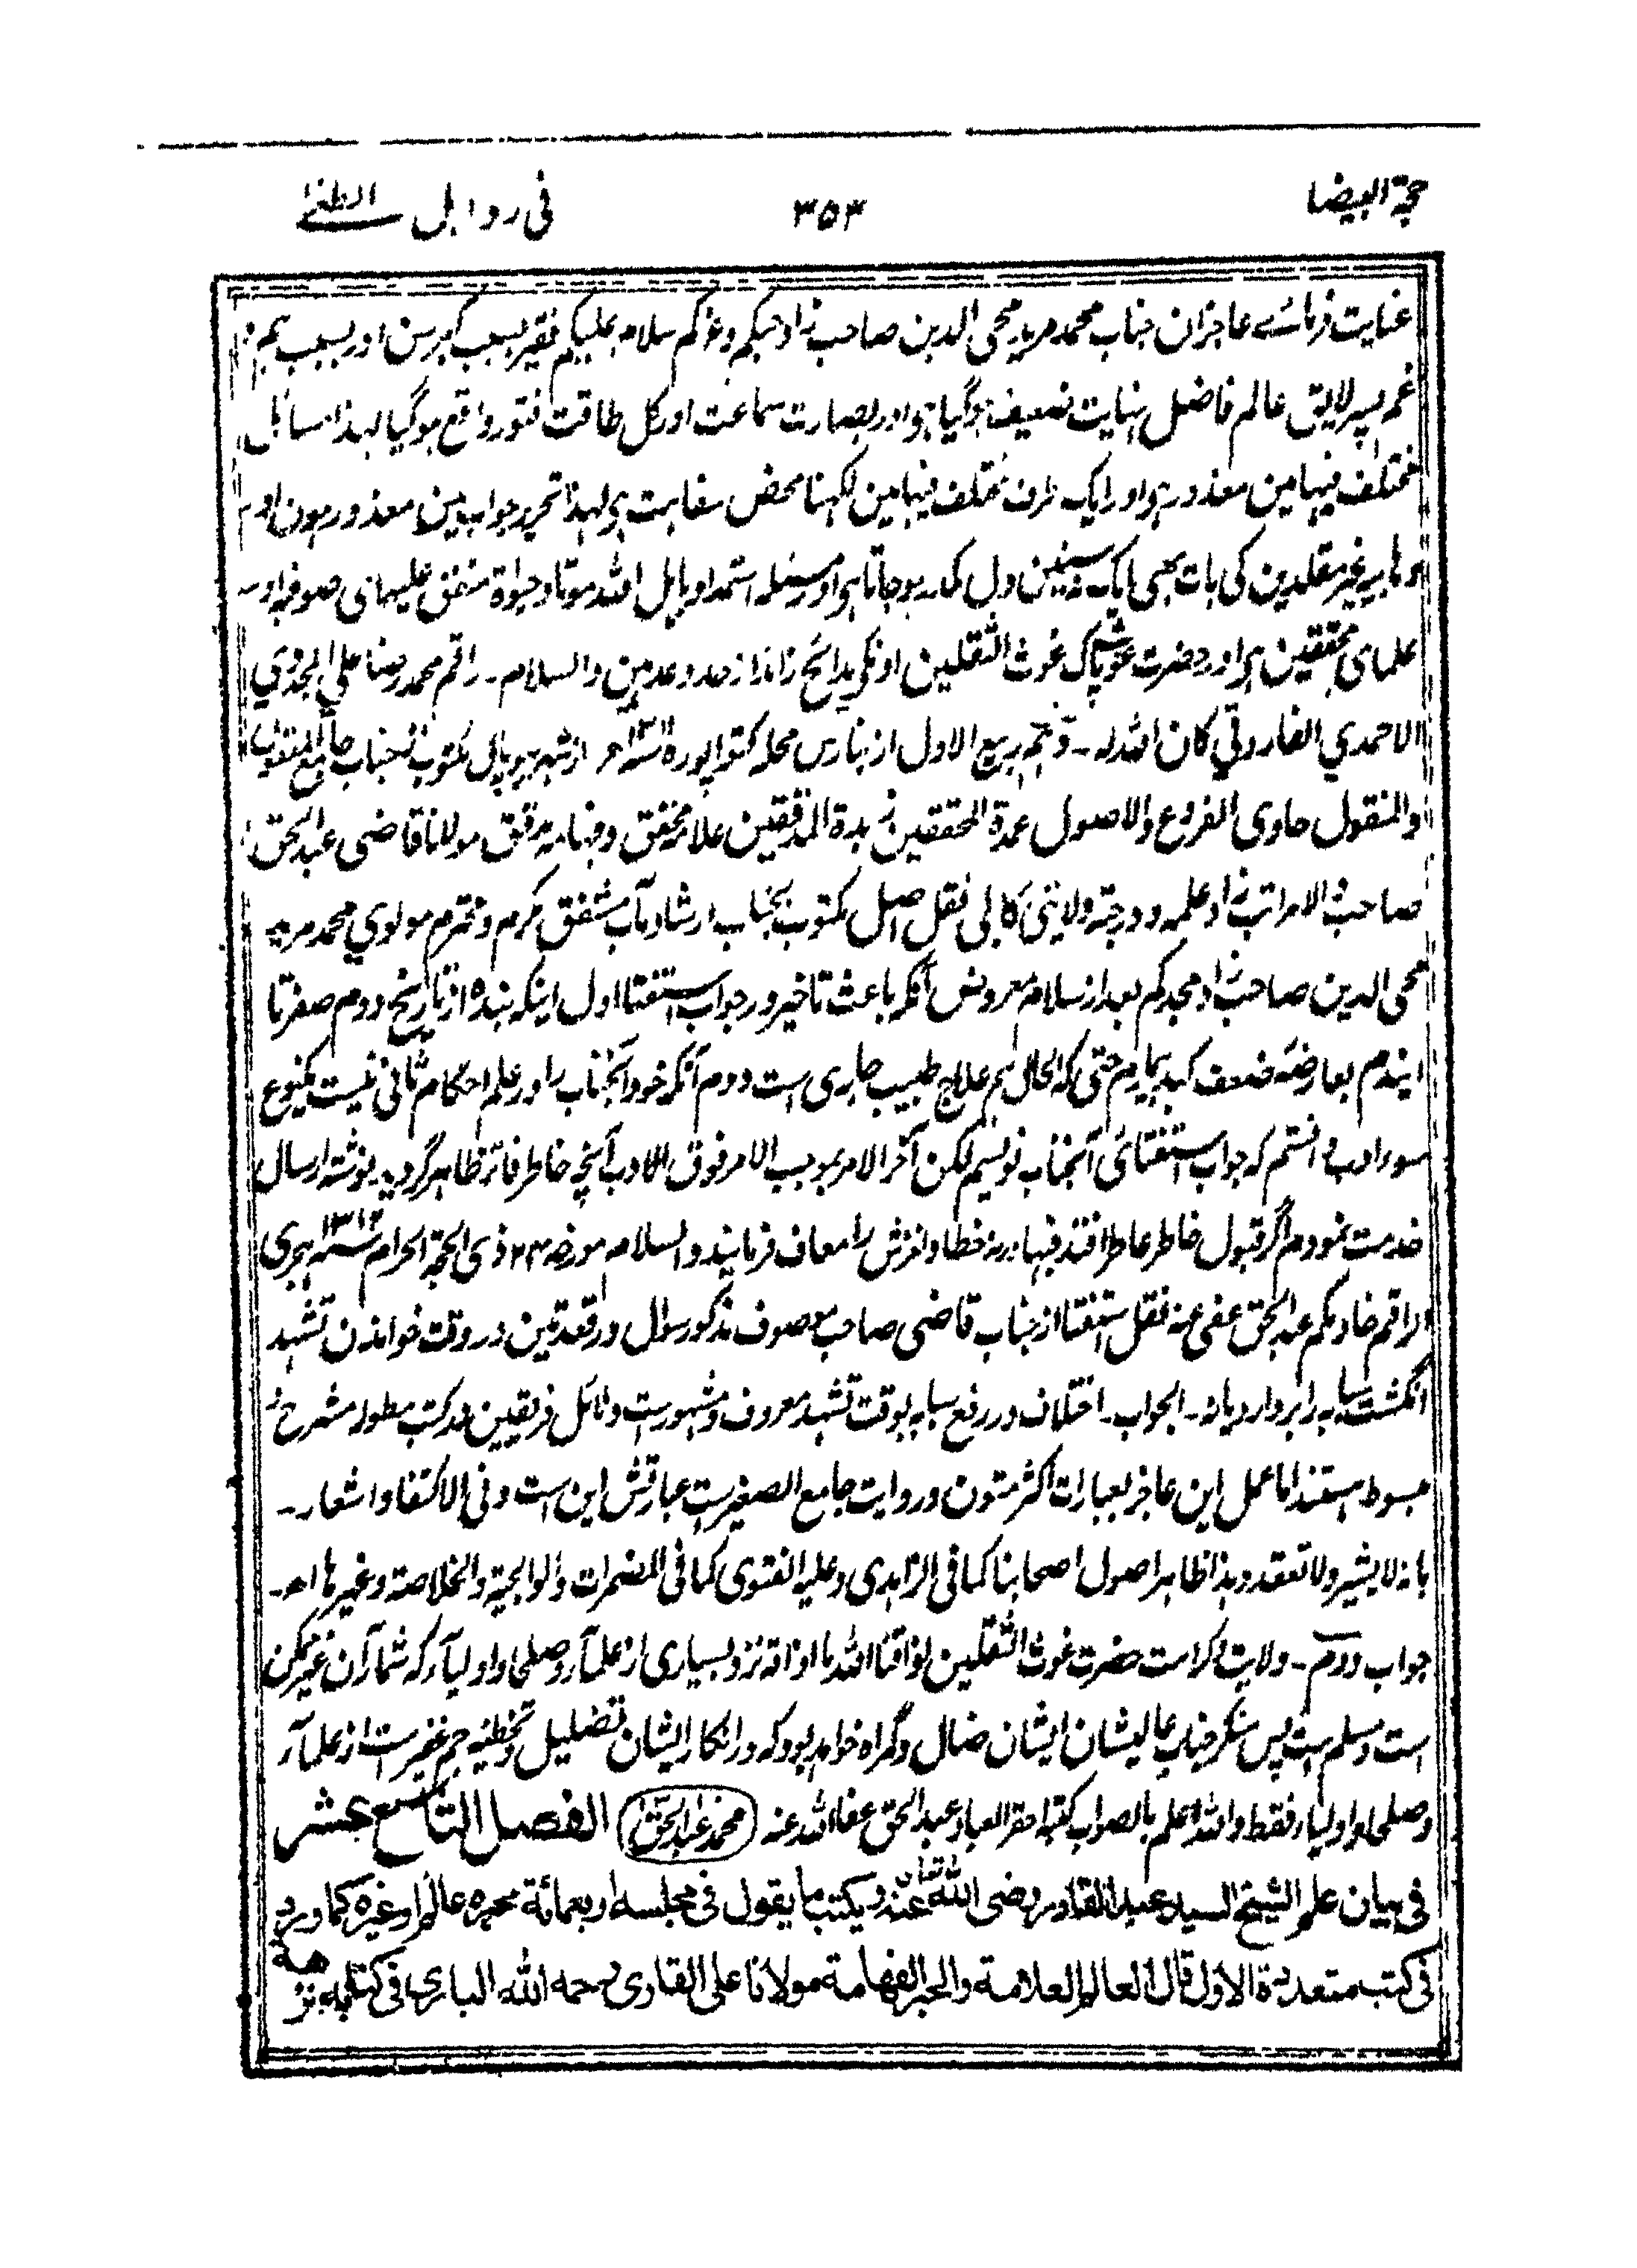 حجة البيضا ٣٥٣ فی رد اہل الطغے
عنایت فرمائے عاجزان جناب محمد مرید محی الدین صاحب زاد حبکم سلامہ علیکم فقیر بسبب کبر سن اور بسبب ہجوم
غم پسر لایق عالم فاضل نہایت ضعیف ہوگیا ہی اور بصارت سماعت اور کل طاقت فتور واقع ہوگیا لہذا مسائل
مختلف فیہا مین معذور ہی اور ایک طرف مختلف فیہا مین لکہنا محض سفاہت ہی لہذا تحریر جواب مین معذور ہون اور
وہابیہ غیر مقلدین کی بات بھی دل مکدر ہو جاتا ہی اور مسئلہ استمداد باہل اللہ موتا وحیوة متفق علیہای صوفیہ اور
علمای محققین ہی اور حضرت غوث پاک غوث الثقلین اونکی مدائح زائد از حد وعد ہین والسلام۔ راقم محمد رضا علی المجددي
الاحمدي الفاروقي کان اللہ لہ۔ پنجم ربیع الاول از بنارس محلہ کتوا پورہ از شہر بہوپال مکتوب جناب جامع المعقول
والمنقول حاوی الفروع والاصول عمدة المحققین زبدة المدققین علامہ محقق وفہامہ مدقق مولانا قاضی عبد الحق
صاحب الامراتب زاد علمہ ودرجتہ ولایتی کابلی نقل اصل مکتوب بجناب ارشاد مآب مشفق مکرم ومحترم مولوي محمد مرید
محی الدین صاحب زاد مجدکم بعد از سلام معروض آنکہ باعث تاخیر در جواب استفتا اول اینکہ بندہ از تاریخ دوم صفر تا
ایندم بعارضہ ضعف کبد بیمارم حتی کہ الحال ہم علاج طبیب جاری است دوم آنکہ خود آنجناب را در علم احکام ثانی نیست یکنوع
سور ادب دانستم کہ جواب استفتائی آنجناب نویسم لکن آخر الامر بموجب الامر فوق الادب آنچہ خاطر فاتر ظاہر گردید نوشتہ ارسال
خدمت نمودم اگر قبول خاطر عاطر افتد فبہا ورنہ خطا ولغزش را معاف فرمایند والسلام مورخہ ٢٣ ذی الحجة الحرام سنہ ١٣١٢ ہجری
الراقم خادمکم عبد الحق عفی عنہ نقل استفتا از جناب قاضی صاحب موصوف مذکور سوال در قعدتین در وقت خواندن تشہد
انگشت سبابہ را بردارد یا نہ۔ الجواب۔ اختلاف در رفع سبابہ بوقت تشہد معروف ومشہور ست ودلائل فریقین در کتب مطولہ مشرح
مبسوط ہستند اما عمل این عاجز بعبارات اکثر متون وروایت جامع الصغیر ست عبارتش این است وفی الاکتفا واشعار۔
بانہ لا یشیر ولا تعقد وہذا ظاہر اصول اصحابنا کما فی الزاہدی وعلیہ الفتوی کما فی المضمرات والولوالجیة والخلاصة وغیرہا اھ۔
جواب دوم۔ ولایت وکرامت حضرت غوث الثقلین اذاقنا اللہ ما اذاقہ نزد بسیاری از علمآر وصلحا واولیآر کہ شمار آن غیر ممکن
است مسلم ست پس منکر جناب عالیشان ایشان ضال وگمراہ خواہد بود کہ در انکار ایشان تضلیل وتخطیہ جم غفیر ست از علمآر
وصلحا واولیار فقط واللہ اعلم بالصواب کتبہ احقر العباد عبد الحق عفا اللہ عنہ (محمد عبد الحق) الفصل التاسع عشر
فی بیان علم الشیخ السید عبد القادر رضی اللہ تعالی عنہ ویکتب ما یقول فی مجلسہ اربعمائة محبرہ عالم او غیرہ کما ورد
فی کتب متعددة الاول قال العالم العلامة والحبر الفہامة مولانا علی القاری رحمہ اللہ الباری فی کتابہ نزهة